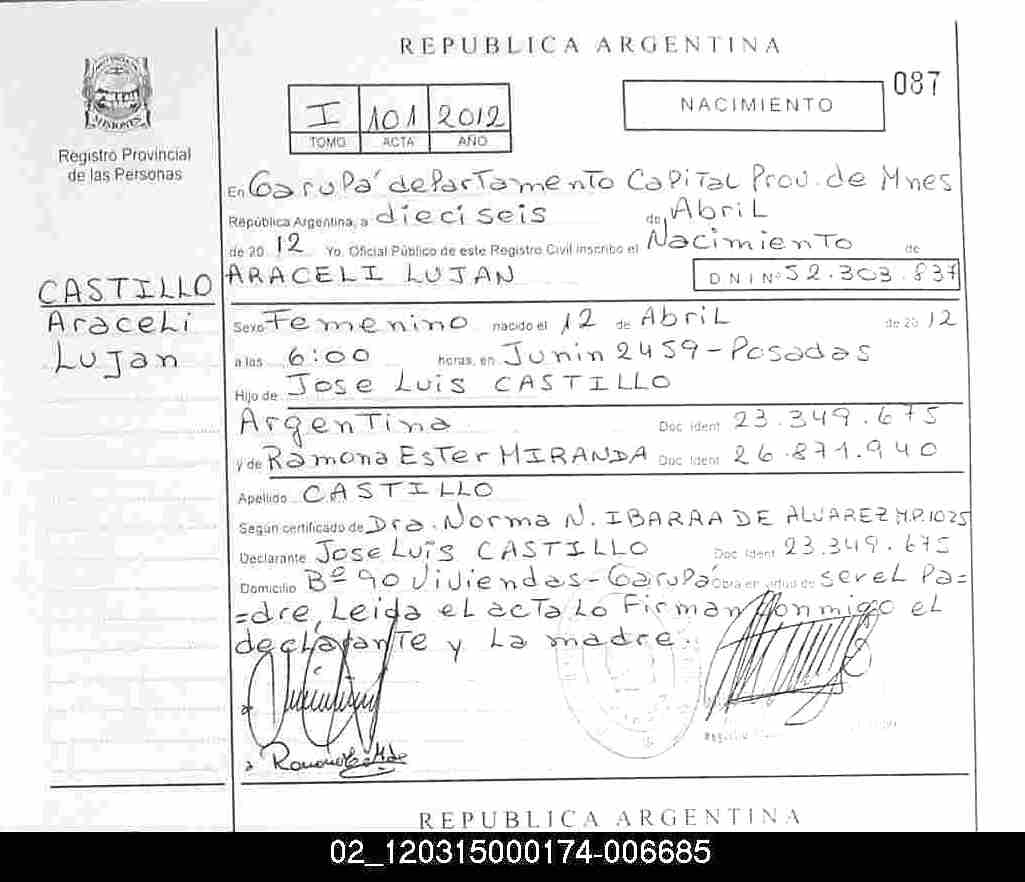 REPUBLICA ARGENTINA
087
I 101 2012
TOMO ACTA AÑO
NACIMIENTO
MISIONES
Registro Provincial
de las Personas
CASTILLO
Araceli
Lujan
En Garupá departamento Capital Prov. de Mnes
República Argentina, a dieciseis de Abril
de 20 12 Yo, Oficial Público de este Registro Civil inscribo el Nacimiento de
ARACELI LUJAN DNI Nº 52.303.837
Sexo Femenino nacido el 12 de Abril de 20 12
a las 6:00 horas, en Junin 2459-Posadas
Hijo de Jose Luis CASTILLO
Argentina Doc Ident 23.349.675
y de Ramona Ester MIRANDA Doc Ident 26.871.940
Apellido CASTILLO
Según certificado de Dra. Norma N. IBARRA DE ALVAREZ M.P.1025
Declarante Jose Luis CASTILLO Doc Ident 23.349.675
Domicilio Bº 90 Viviendas-Garupá Obra en virtud de ser el Pa=
=dre, Leida el acta Lo Firman Conmigo el
declarante y La madre.
REPUBLICA ARGENTINA
02_120315000174-006685